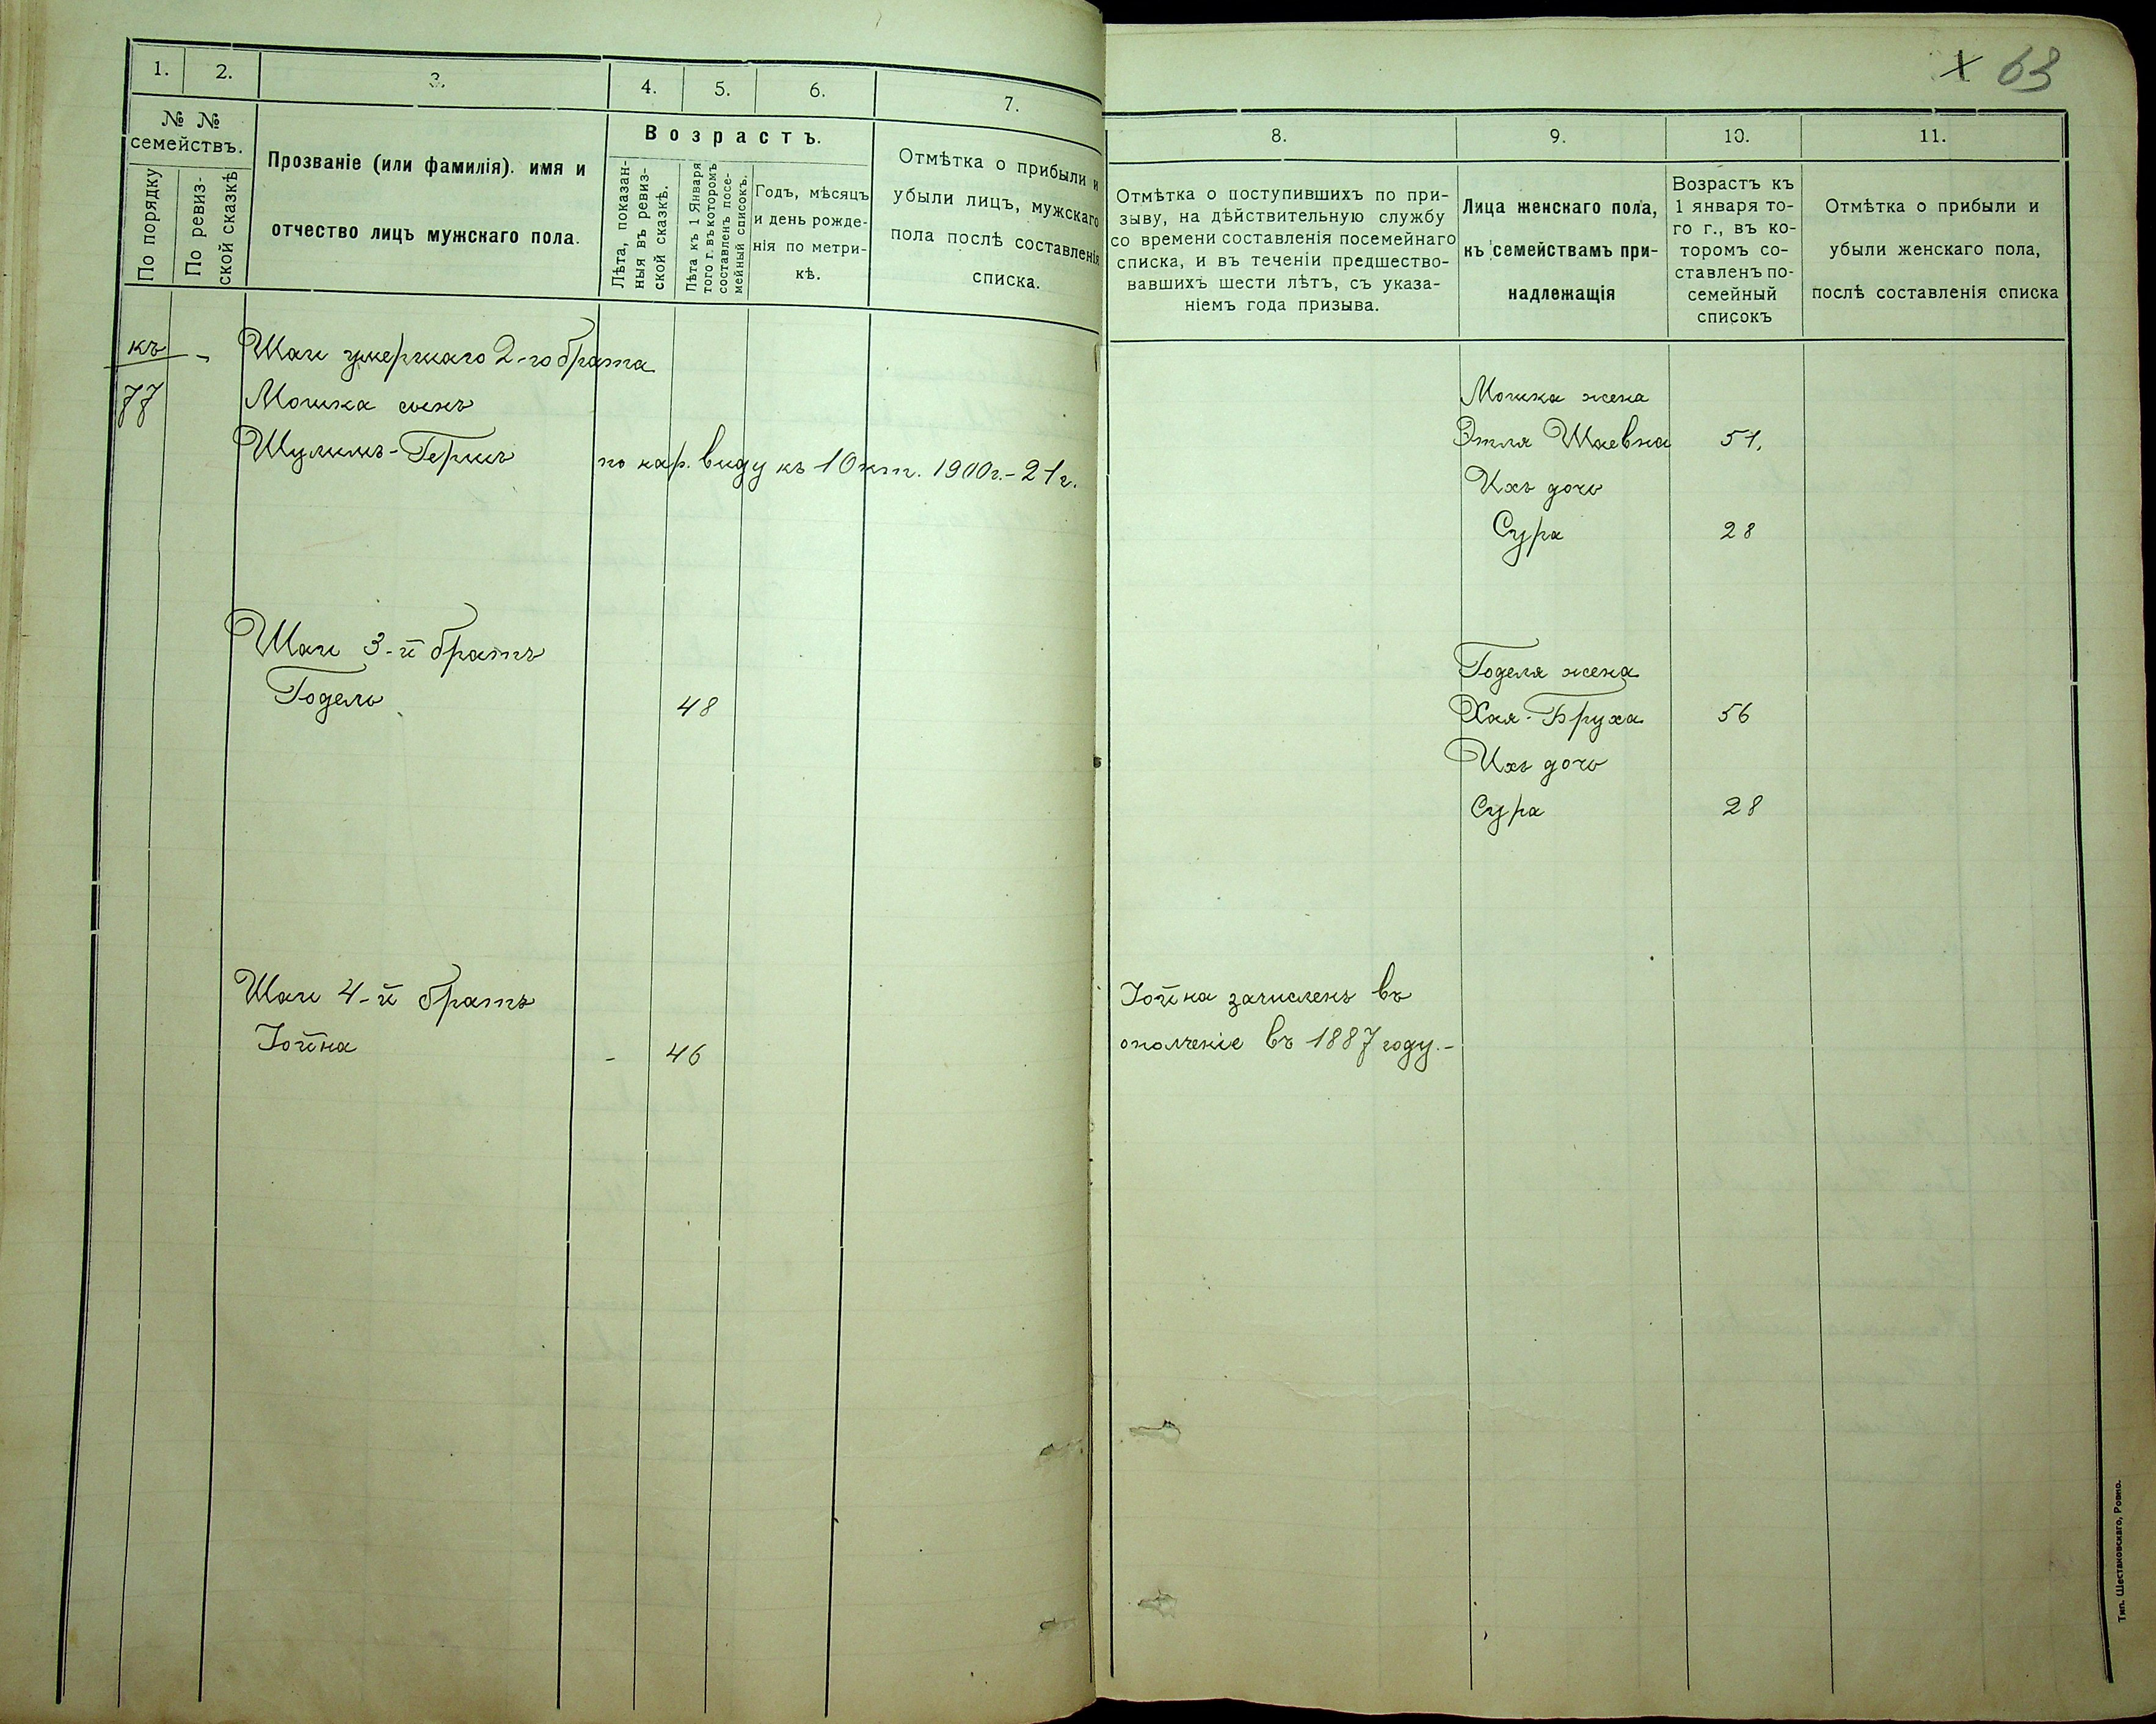 1.
2.
3.
4.
5.
6.
7.
№ №
семействъ.
По порядку
По ревиз-
ской сказкѣ
Прозваніе (или фамилія). имя и
отчество лицъ мужскаго пола.
Возрастъ.
Лѣта, показан-
ныя въ ревиз-
ской сказкѣ.
Лѣта къ 1 Января
того г. въ которомъ
составленъ посе-
мейный списокъ.
Годъ, мѣсяцъ
и день рожде-
нія по метри-
кѣ.
Отмѣтка о прибыли и
убыли лицъ, мужскаго
пола послѣ составленія
списка.
къ
77
Шаи умершаго 2-го брата
Мошка сынъ
Шулимъ-Гершъ по нар. виду къ 1 Окт. 1900г.-21г.
Шаи 3-й братъ
Годель 48
Шаи 4-й братъ
Іойна - 46
63
8.
9.
10.
11.
Отмѣтка о поступившихъ по при-
зыву, на дѣйствительную службу
со времени составленія посемейнаго
списка, и въ теченіи предшество-
вавшихъ шести лѣтъ, съ указа-
ніемъ года призыва.
Лица женскаго пола,
къ семействамъ при-
надлежащія
Возрастъ къ
1 января то-
го г., въ ко-
торомъ со-
ставленъ по-
семейный
списокъ
Отмѣтка о прибыли и
убыли женскаго пола,
послѣ составленія списка
Мошка жена
Этля Шаевна 51,
Ихъ дочь
Сура 28
Годеля жена
Хая-Бруха 56
Ихъ дочь
Сура 28
Іойна зачисленъ въ
ополченіе въ 1887 году.-
Тип. Шестаковскаго, Ровно.